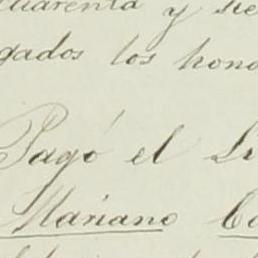 cuarenta y sie
gados los hono
Pagó el Sr
Mariano Co